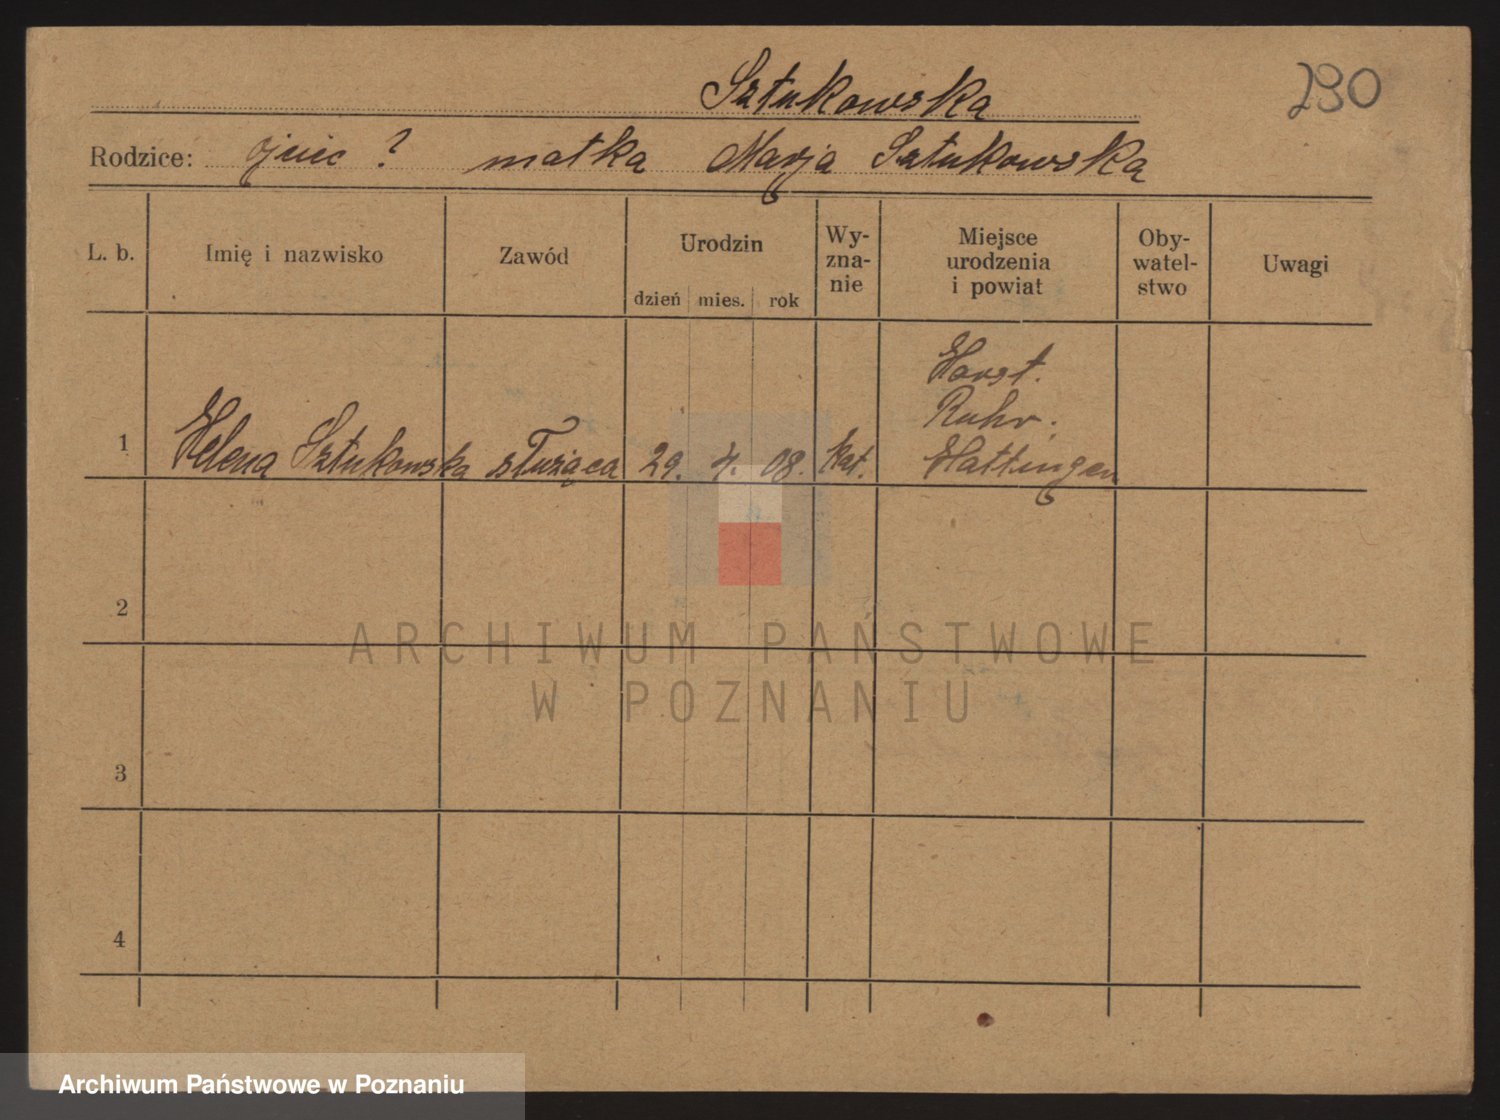 Sztukowska
290
Rodzice: ojciec ? matka Marja Sztukowska
L. b. Imię i nazwisko Zawód Urodzin dzień mies. rok Wy-zna-nie Miejsce urodzenia i powiat Oby-watel-stwo Uwagi
Horst.
Ruhr.
1 Helena Sztukowska służąca 29. 4. 08. kat. Hattingen
2
ARCHIWUM PAŃSTWOWE
W POZNANIU
3
4
Archiwum Państwowe w Poznaniu